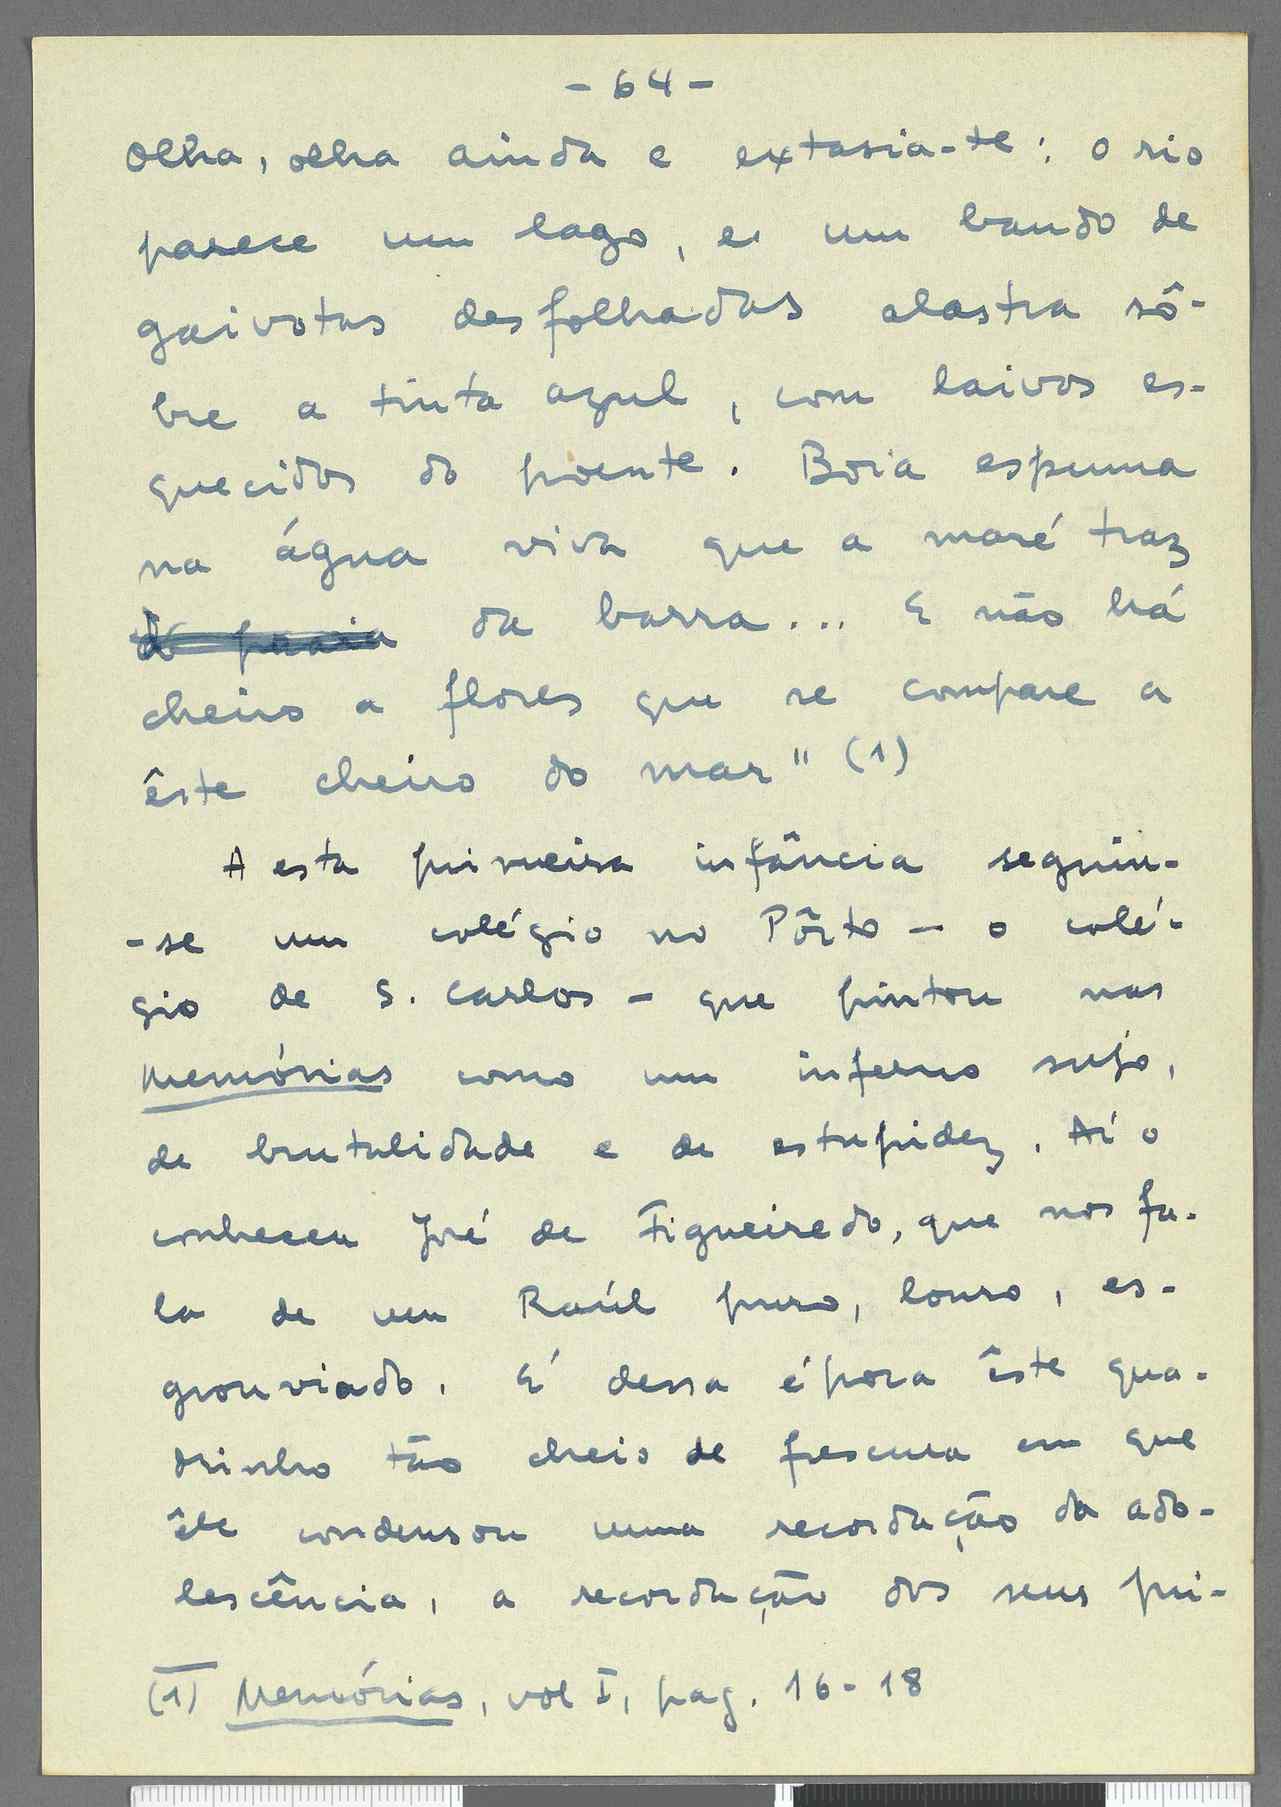 - 64 -
Olha, olha ainda e extasia-te: o rio
parece um lago, e um bando de
gaivotas desfolhadas alastra sô-
bre a tinta azul, com laivos es-
quecidos do poente. Boia espuma
na água viva que a maré traz
da barra... E não há
cheiro a flores que se compare a
êste cheiro do mar" (1)
A esta primeira infância seguiu-
-se um colégio no Pôrto - o colé-
gio de S. Carlos - que pintou nas
Memórias como um inferno sujo,
de brutalidade e de estupidez. Aí o
conheceu José de Figueiredo, que nos fa-
la de um Raúl puro, louro, es-
grouviado. É dessa época êste qua-
drinho tão cheio de frescura em que
êle condensou uma recordação da ado-
lescência, a recordação dos seus pri-
(1) Memórias, vol I, pag. 16-18